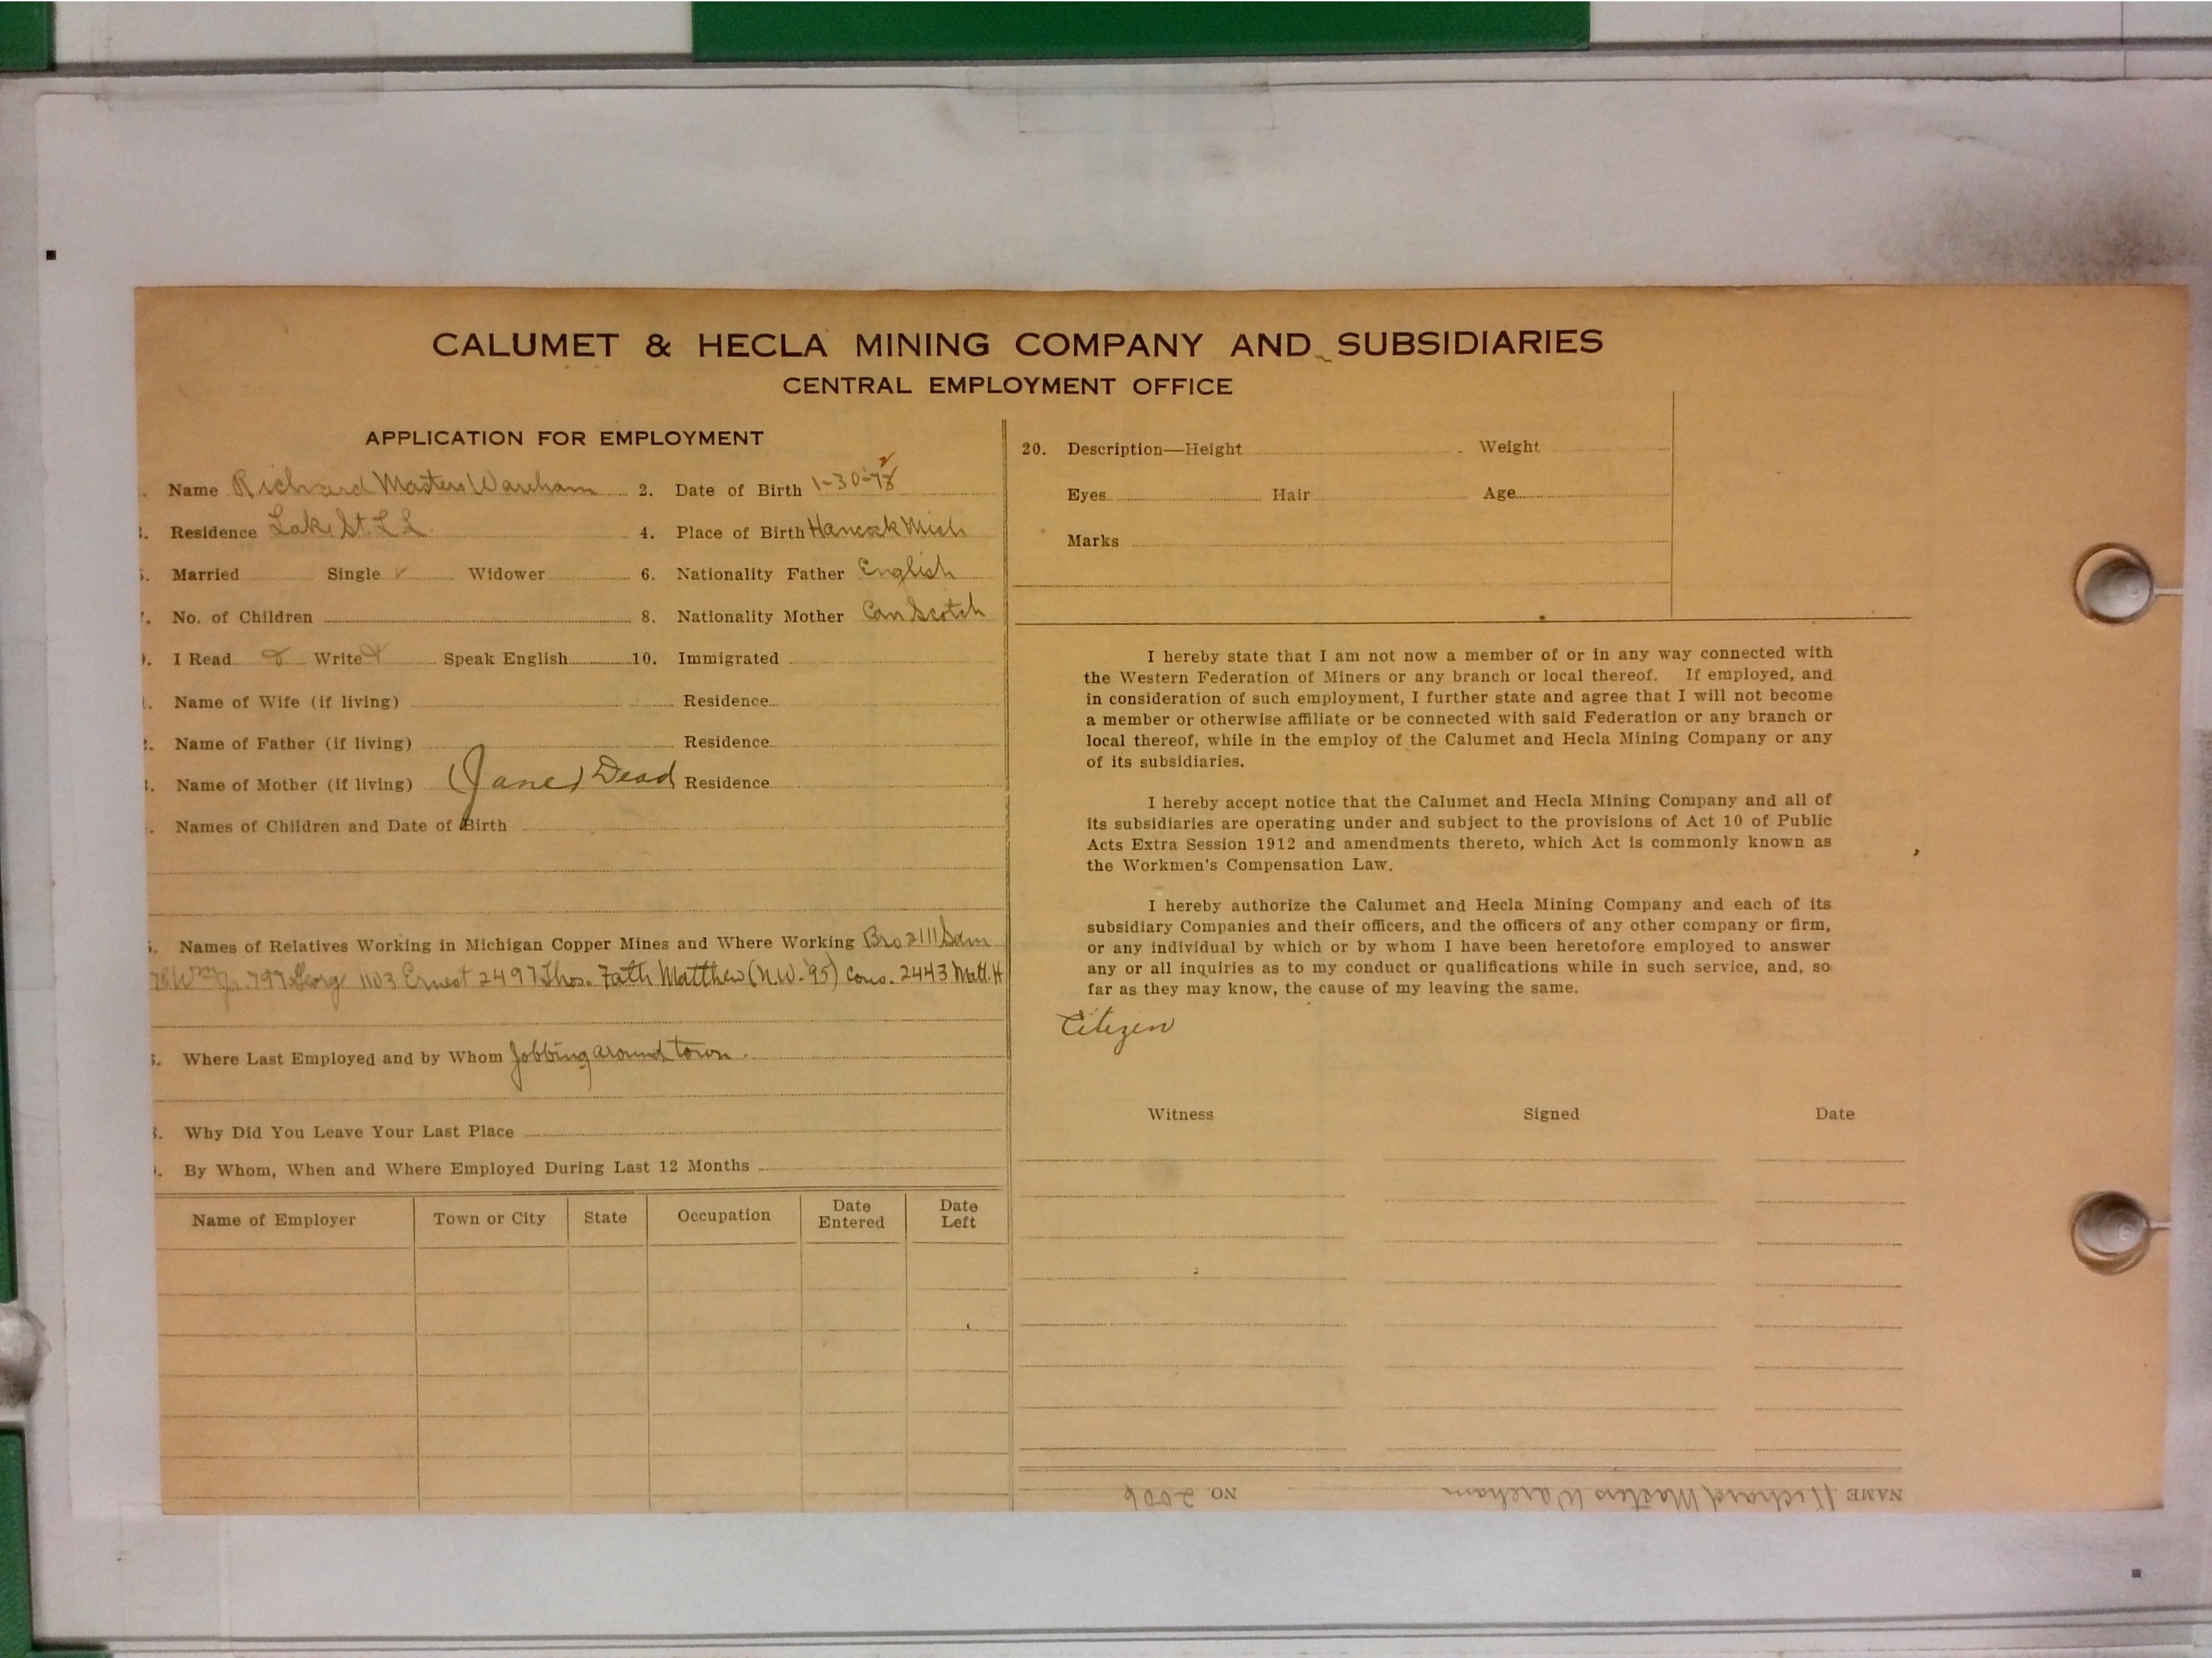 CALUMET & HECLA MINING COMPANY AND SUBSIDIARIES
CENTRAL EMPLOYMENT OFFICE
APPLICATION FOR EMPLOYMENT
Name Richard Masters Wareham 2. Date of Birth 1-30-7
Residence Lake St. L L. 4. Place of Birth Hancock Mich
Married Single ✓ Widower 6. Nationality Father English
No. of Children 8. Nationality Mother Can Scotch
I Read Write Speak English 10. Immigrated
Name of Wife (if living) Residence
Name of Father (if living) Residence
Name of Mother (if living) (Jane) Dead Residence
Names of Children and Date of Birth
Names of Relatives Working in Michigan Copper Mines and Where Working Bro 2111 Sam
Wm Jr. 797 Georg 1103 Ernest 2497 Thos. Fath Matthew (N.W.-'95) Cous. 2443 Matt. H
Where Last Employed and by Whom Jobbing around town.
Why Did You Leave Your Last Place
By Whom, When and Where Employed During Last 12 Months
Name of Employer Town or City State Occupation Date Entered Date Left
20. Description—Height Weight
Eyes Hair Age
Marks
I hereby state that I am not now a member of or in any way connected with
the Western Federation of Miners or any branch or local thereof. If employed, and
in consideration of such employment, I further state and agree that I will not become
a member or otherwise affiliate or be connected with said Federation or any branch or
local thereof, while in the employ of the Calumet and Hecla Mining Company or any
of its subsidiaries.
I hereby accept notice that the Calumet and Hecla Mining Company and all of
its subsidiaries are operating under and subject to the provisions of Act 10 of Public
Acts Extra Session 1912 and amendments thereto, which Act is commonly known as
the Workmen's Compensation Law.
I hereby authorize the Calumet and Hecla Mining Company and each of its
subsidiary Companies and their officers, and the officers of any other company or firm,
or any individual by which or by whom I have been heretofore employed to answer
any or all inquiries as to my conduct or qualifications while in such service, and, so
far as they may know, the cause of my leaving the same.
Citizen
Witness Signed Date
NAME Richard Masters Wareham NO. 2006